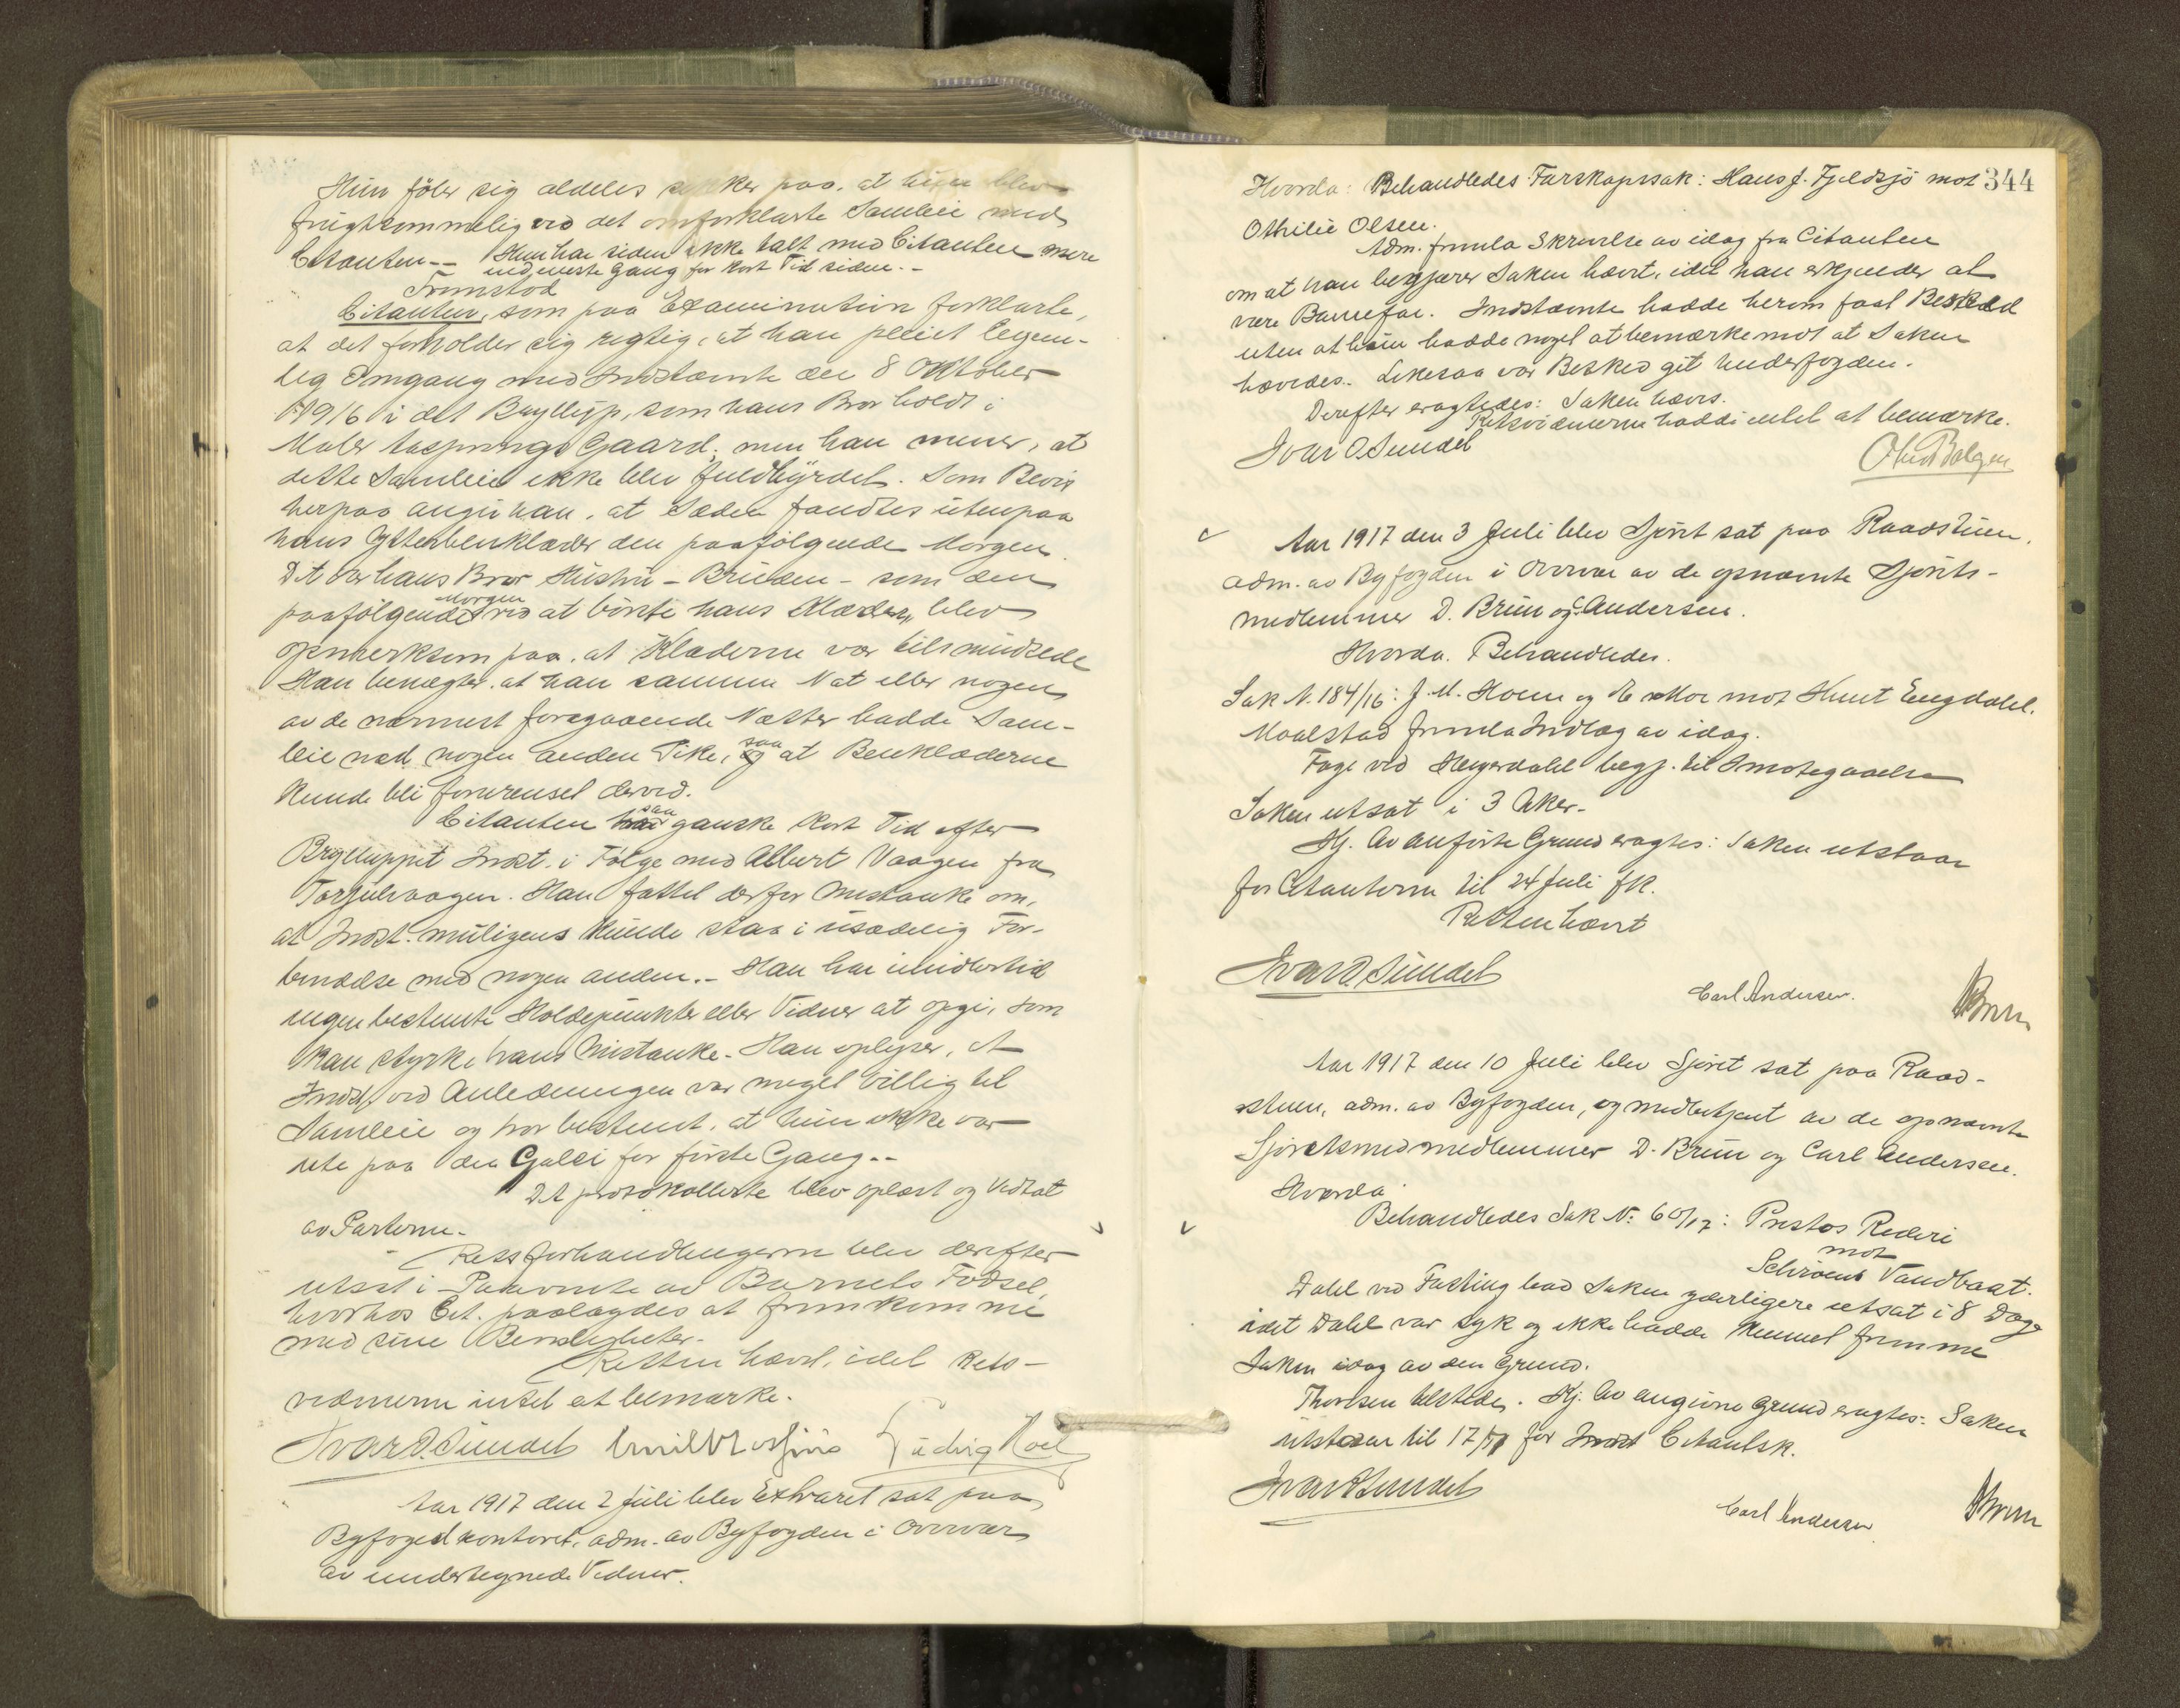 Hun föler sig aldeles sikker paa, at hun blev
frugtsommelig ved det omforklarte Samleie med
Citanten.- Hun har siden ikke talt med Citanten mere
end eneste Gang for kort Tid siden.-
Fremstod
Citanten, som paa Examination forklarte,
at det forholder sig rigtig, at han pleiet legem-
lig Omgang med Indstævnte den 8 Oktober
1916 i det Bryllup, som hans Bror holdt i
Maler Gaard; men han mener, at
dette Samleie ikke blev fuldbyrdet. Som Bevis
herpaa angir han, at Sæden fandtes utenpaa
hans Ytterbenklæder den paafölgende Morgen.
Det var hans Bror Hustru - Bruden - som den
paafölgende Morgen ved at börste hans Klæder, blev
opmerksom paa, at Klæderne var tilsmudsede
Han benegter, at han samme Nat eller nogen
av de nærmest foregaaende Nætter hadde Sam-
leie med nogen anden Pike, saa at Benklæderne
kunde bli forurenset derved.
Citanten saa ganske kort Tid efter
Bryllupet Indst. i Fölge med Albert Vaagen fra
Torjulvaagen. Han fattet derfor Mistanke om,
at Indst. muligens kunde staa i usædelig For-
bindelse med nogen anden.- Han har imidlertid
ingen bestemte Holdepunkter eller Vidner at opgi, som
kan styrke hans Mistanke. Han oplyser, at
Indst. ved Anledningen var meget villig til
Samleie og tror bestemt, at hun ikke var
ute paa den Galei for förste Gang.-
Det protokollerte blev oplæst og vedtat
av Parterne.
Retsforhandlingerne blev derefter
utsat i Paavente av Barnets Födsel,
hvorhos Cit. paalagdes at fremkomme
med sine Bevisligheter.
Retten hævet, idet Rets-
vidnerne intet at bemærke.
Ivar O. Sundet Ludvig Hoel
Aar 1917 den 2 Juli blev Extraret sat paa
Byfogedkontoret, adm. av Byfogden i Overvær
av undertegnede Vidner.
344
Hvorda: Behandledes Farskapssak: Hans J. Fjeldsjö mot
Othilie Olsen.
Adm. fremla Skrivelse av idag fra Citanten
om at han begjærer Saken hævet, idet han erkjender at
være Barnefar. Indstævnte hadde herom faat Besked
uten at hun hadde noget at bemærke mot at Saken
hævedes. Likesaa var Besked git Underfogden.
Derefter eragtedes: Saken hæves.
Retsvidnerne hadde intet at bemærke.
Ivar O Sundet
Aar 1917 den 3 Juli blev Sjöret sat paa Raadstuen,
adm. av Byfogden i Overvær av de opnævnte Sjörets-
medlemmer D. Brun og C. Andersen.
Hvorda. Behandledes.
Sak N. 184/16: J. M. Hoem og E. Moe mot Knut Engdahl.
Maalstad fremla Indlæg av idag.
Fage ved Heyerdahl begj. til Imotegaaelse
Saken utsat i 3 Uker.
Kj. Av anförte Grund eragtes: Saken utstaar
for Citanterne til 24 Juli fk.
Retten hævet
Ivar O. Sundet
Carl Andersen.
D Brun
Aar 1917 den 10 Juli blev Sjöret sat paa Raad-
stuen, adm. av Byfogden, og medbetjent av de opnævnte
Sjöretsmedmedlemmer D. Brun og Carl Andersen.
Hvorda
Behandledes Sak N: 60/17: Prestos Rederi
mot
Schröens Vandbaat.
Dahl ved Fasting bad Saken yderligere utsat i 8 Dage
idet Dahl var syk og ikke hadde kunnet fremme
Saken idag av den Grund.
Thoresen tilstede. Kj. Av angivne Grund eragtes: Saken
utstaar til 17/7 for Citantsk.
Ivar O Sundet
Carl Andersen
D Brun